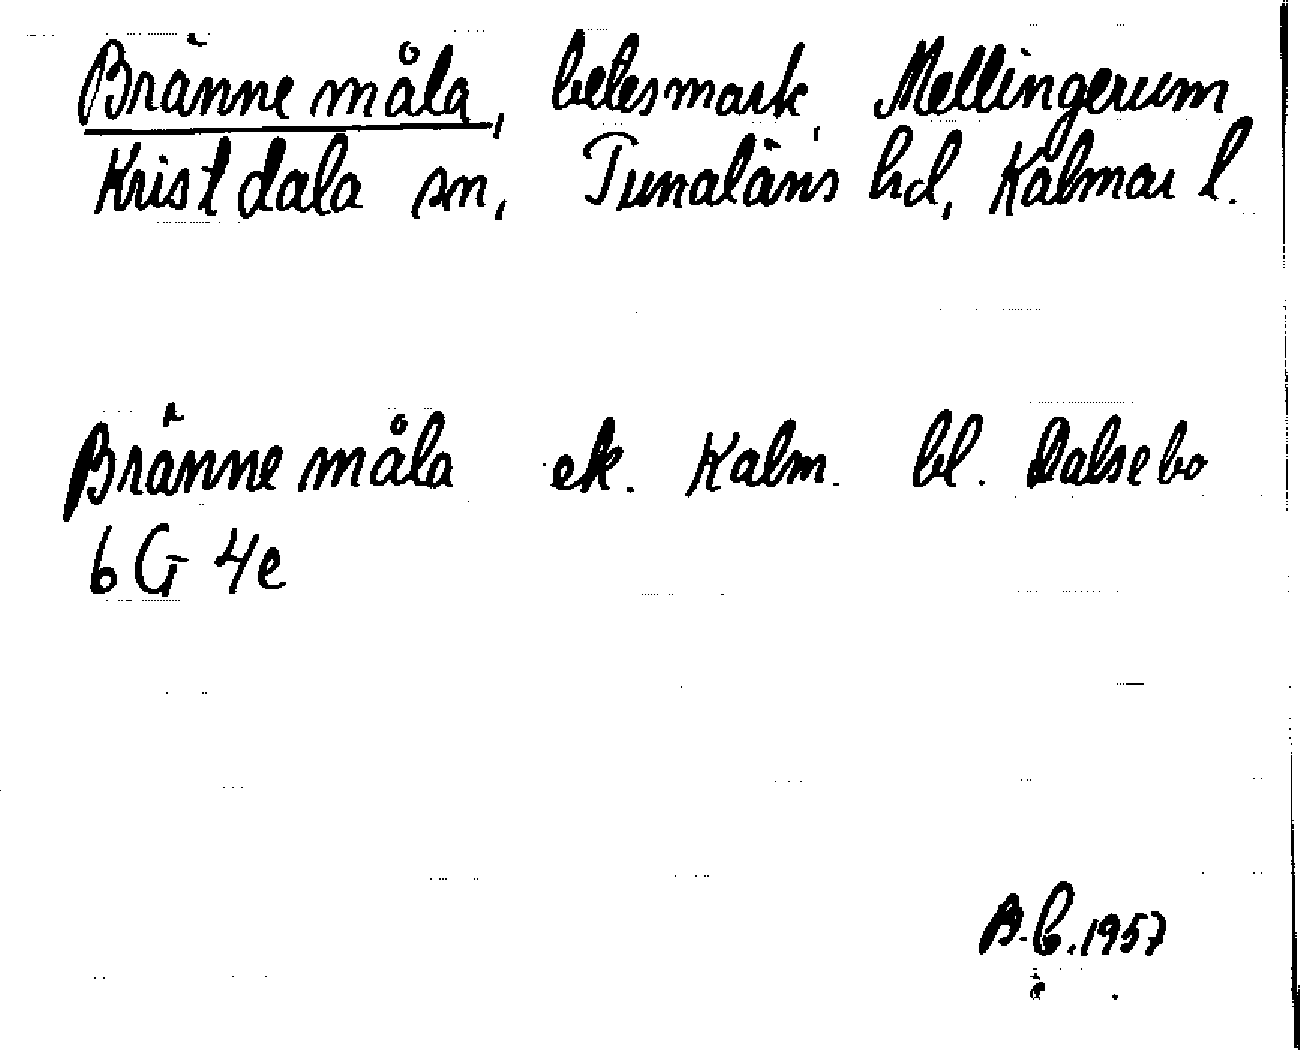 Bränne måla, betesmark, Mellingerum
Kristdala sn, Tunaläns hd, Kalmar l.
Bränne måla ek. Kalm. bl. Dalsebo
6 G 4e
B.C. 1957